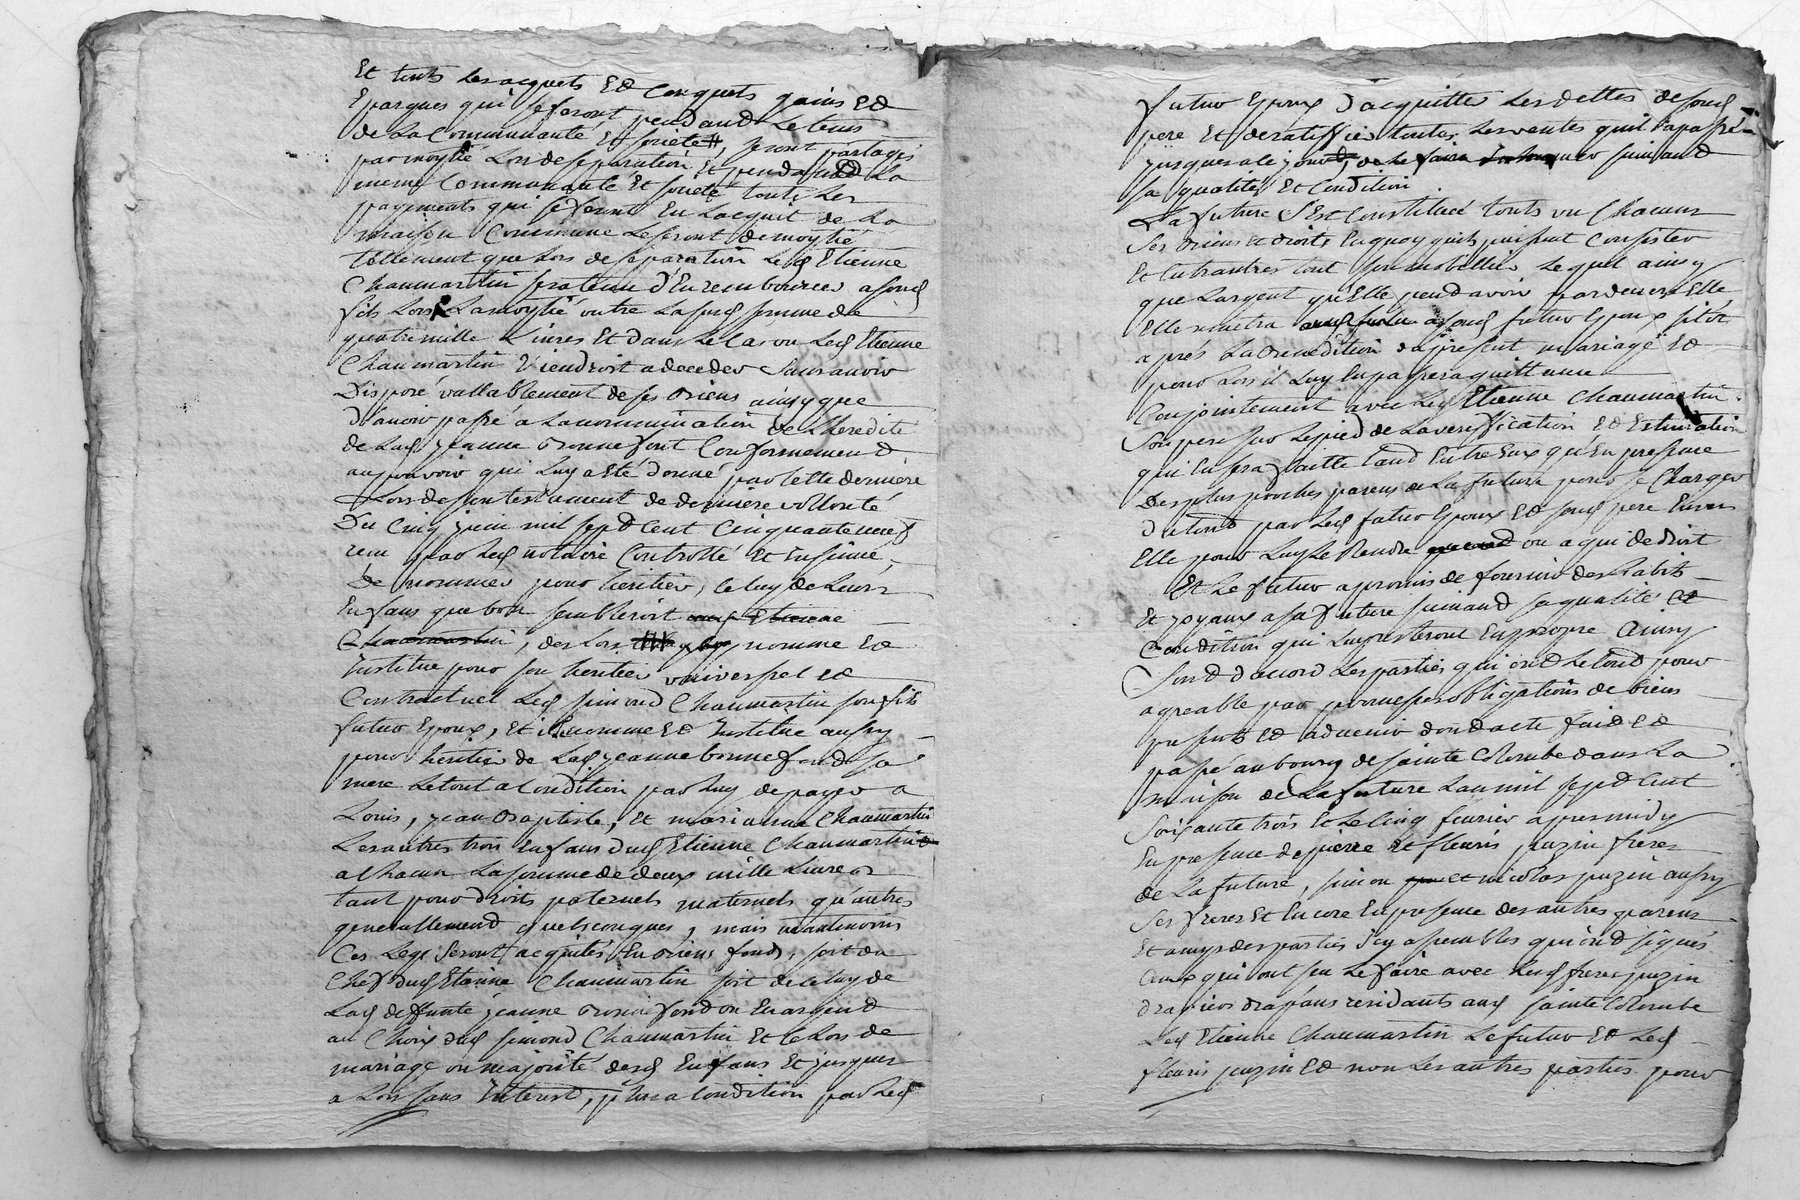 Et touts les acquets Ed Conquets gains Ed
Epargnes qui se feront pendand Le tems
de La Communauté Et societé, seront partagés
par moytié Lors de separation, Et pendand La
meme Communauté Et societé touts Les
payements qui se feront En Lacquit de La
maison Commune Le seront de moytié
tellement que Lors de separation Led Etienne
Chaumartin sera tenu d'En rembourcer a sond
fils Lors La moytié outre Lasusd somme de
quatre mille Livres Et dans Le Cas ou Led Etienne
Chaumartin Viendroit a deceder sans avoir
Disposé vallablement de ses Biens ainsy que
d'avoir passé a La nommination de L'heredité
de Lad jeanne Bonnefont Conformement
au pouvoir qui Luy a eté donné par Cette derniere
Lors de son testament de derniere vollonté
Du Cinq juin mil sept Cent Cinquante neuf
reçu par Led notaire Controllé Et Insinué,
De nommer pour heritier, Celuy de Leurs
Enfans que bon sembleroit Etienne
Chaumartin, des Lors nomme Ed
Institue pour son heritier universel Ed
Contractuel Led simond Chaumartin son fils
futur Epoux, Et il nomme Ed Institue aussy
pour heritier de Lad jeanne bonnefond sa
mere Le tout a Condition par Luy de payer a
Louis, jean Baptiste, Et marianne Chaumartin
Les autres trois Enfans dud Etienne Chaumartin
a Chacun La somme de deux mille Livres
tant pour droits paternels maternels qu'autres
generallement quelsconques, mais neantmoins
Ces Legs seront acquités En Biens fonds, soit du
Chef dud Etienne Chaumartin soit de Celuy de
Lad deffunte jeanne Bonnefond ou En argend
au Choix dud simond Chaumartin Et Ce Lors de
mariage ou majorité desd Enfans Et jusques
a Lors sans Interest, plus a Condition par Led
futur Epoux d'acquitter Les dettes de sond
pere Et de ratiffier toutes Les ventes qu'il a passé
jusques a Ce jourd, de Le faire suivand
sa qualité Et Condition
La future s'Est Constitué touts un Chacuns
ses Biens Et droits En quoy qu'ils puissent Consister
Et Entrautres tout son mobillier Lequel ainsy
que Largent qu'Elle peud avoir pardevers Elle
Elle mettra a sond futur Epoux sitot
aprés La Benediction du present mariage Ed
pour Lors il Luy En passera quittance
Conjointement avec Led Etienne Chaumartin
son pere sur Le pied de La veriffication Ed Estimation
qui En sera faitte tand Entre Eux qu'En presence
Des plus proches parens de La future pour se Charger
du toud par Led futur Epoux Ed sond pere Envers
Elle pour Luy Le Rendre ou a qui de droit
Et Le futur a promis de fournir des habits
Et joyaux a sa future suivand sa qualité Et
Condition qui Luy resteront En propre Ainsy
sond d'accord Les parties qui ond Le toud pour
agreable par promesses obligations de biens
presents Ed advenir dond acte faid Ed
passé au bourg de sainte Colombe dans La
maison de La future Lan mil sept Cent
soixante trois Et Le Cinq fevrier apres midy
En presence de pierre Et fleuris puzin freres
de La future, simon et nicolas puzin aussy
ses freres Et Encore En presence des autres parens
Et amys des parties Icy assembles qui ond signés
Ceux qui ont seu Le faire avec Lesd freres puzin
residants aud sainte Colombe
Led Etienne Chaumartin Le futur Et Led
fleuris puzin Ed non Les autres parties pour